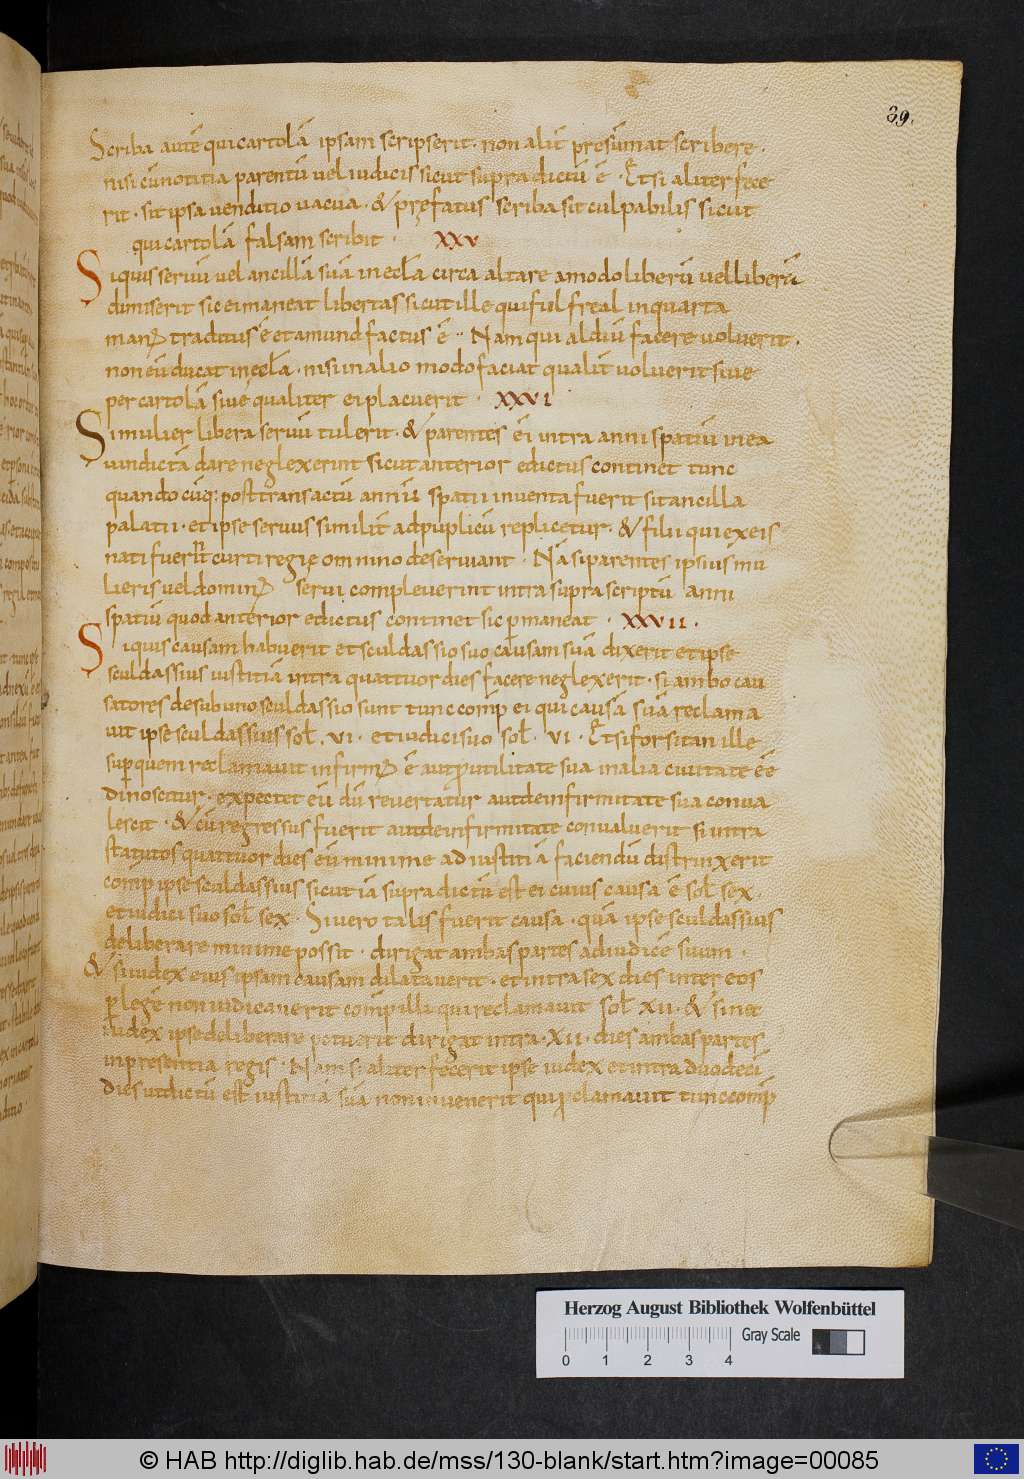 39.
Scriba autē qui cartolā ipsam scripserit. non alit̄ presūmat scribere.
nisi cū notitia parentū vel iudicis sicut supra dictū ē. Et si aliter fece
rit. sit ipsa venditio vacua. & prefatus scriba sit culpabilis sicut
qui cartolā falsam scribit. XXV
Si quis servū vel ancillā suā in eclā circa altare amodo liberū vel liberā
dimiserit sic ei maneat libertas sicut ille qui fulfreal in quarta
man traditus ē et amund factus ē. Nam qui aldiū facere voluerit.
non eū ducat in eclā. nisi in alio modo faciat qualit̄ voluerit sive
per cartolā sive qualiter ei placuerit. XXVI
Si mulier libera servū tulerit. & parentes ei intra anni spatiū in ea
vindictā dare neglexerint sicut anterior edictus continet tunc
quando cūq: post transactū annū spatii inventa fuerit sit ancilla
palatii. et ipse servus similit̄ ad puplicū replicetur. & filii qui ex eis
nati fuerint curti regie omnino deserviant. Nā si parentes ipsius mu
lieris vel domin servi compleverint intra supra scriptū anni
spatiū quod anterior edictus continet sic p̄maneat. XXVII.
Si quis causam habuerit et sculdassio suo causam suā dixerit et ipse
sculdassius iustitiā intra quattuor dies facere neglexerit. si ambo cau
satores de sub uno sculdassio sunt tunc comp̄ ei qui causā suā reclama
vit ipse sculdassius sol̄. VI. et iudici suo sol̄. VI. Et si forsitan ille
sup̄ quem reclamavit infirm ē aut p̄ utilitate sua in alia civitate eē
dinoscitur. expectet eū dū revertatur aut de infirmitate sua conva
lescit. & cū regressus fuerit aut de infirmitate convaluerit si intra
statutos quattuor dies eū minime ad iustitiā faciendū distrinxerit
comp̄ ipse sculdassius sicut iā supra dictū est ei cuius causa ē sol̄ sex
et iudici suo sol̄ sex. Si vero talis fuerit causa. quā ipse sculdassius
deliberare minime possit. dirigat ambas partes ad iudicē suum.
& si iudex eius ipsam causam dilataverit. et intra sex dies inter eos
p̄ legē non iudicaverit comp̄ illi qui reclamavit sol̄ XII. & si nec
iudex ipse deliberare potuerit dirigat intra. XII. dies ambas partes
in presentia regis. Nam si aliter fecerit ipse iudex et intra duodecī
dies ut dictū est iustitiā suā non invenerit qui p̄clamavit tunc comp̄
Herzog August Bibliothek Wolfenbüttel
0 1 2 3 4 Gray Scale
© HAB http://diglib.hab.de/mss/130-blank/start.htm?image=00085